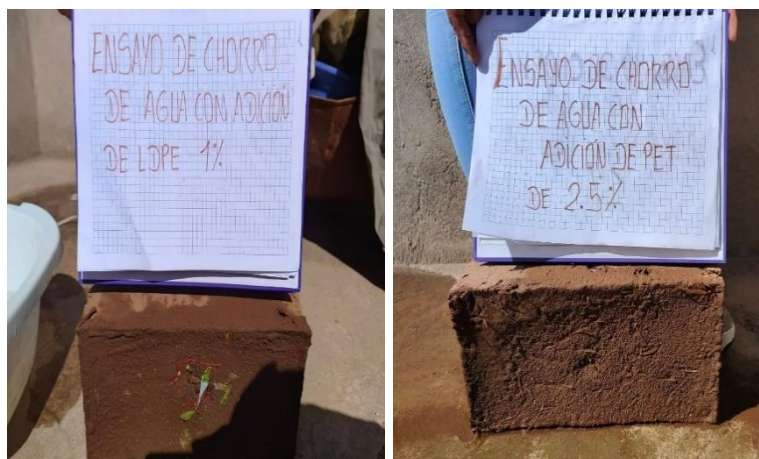 ENSAYO DE CHORRO
DE AGUA CON ADICIÓN
DE LDPE 1%
ENSAYO DE CHORRO
DE AGUA CON
ADICIÓN DE PET
DE 2.5%